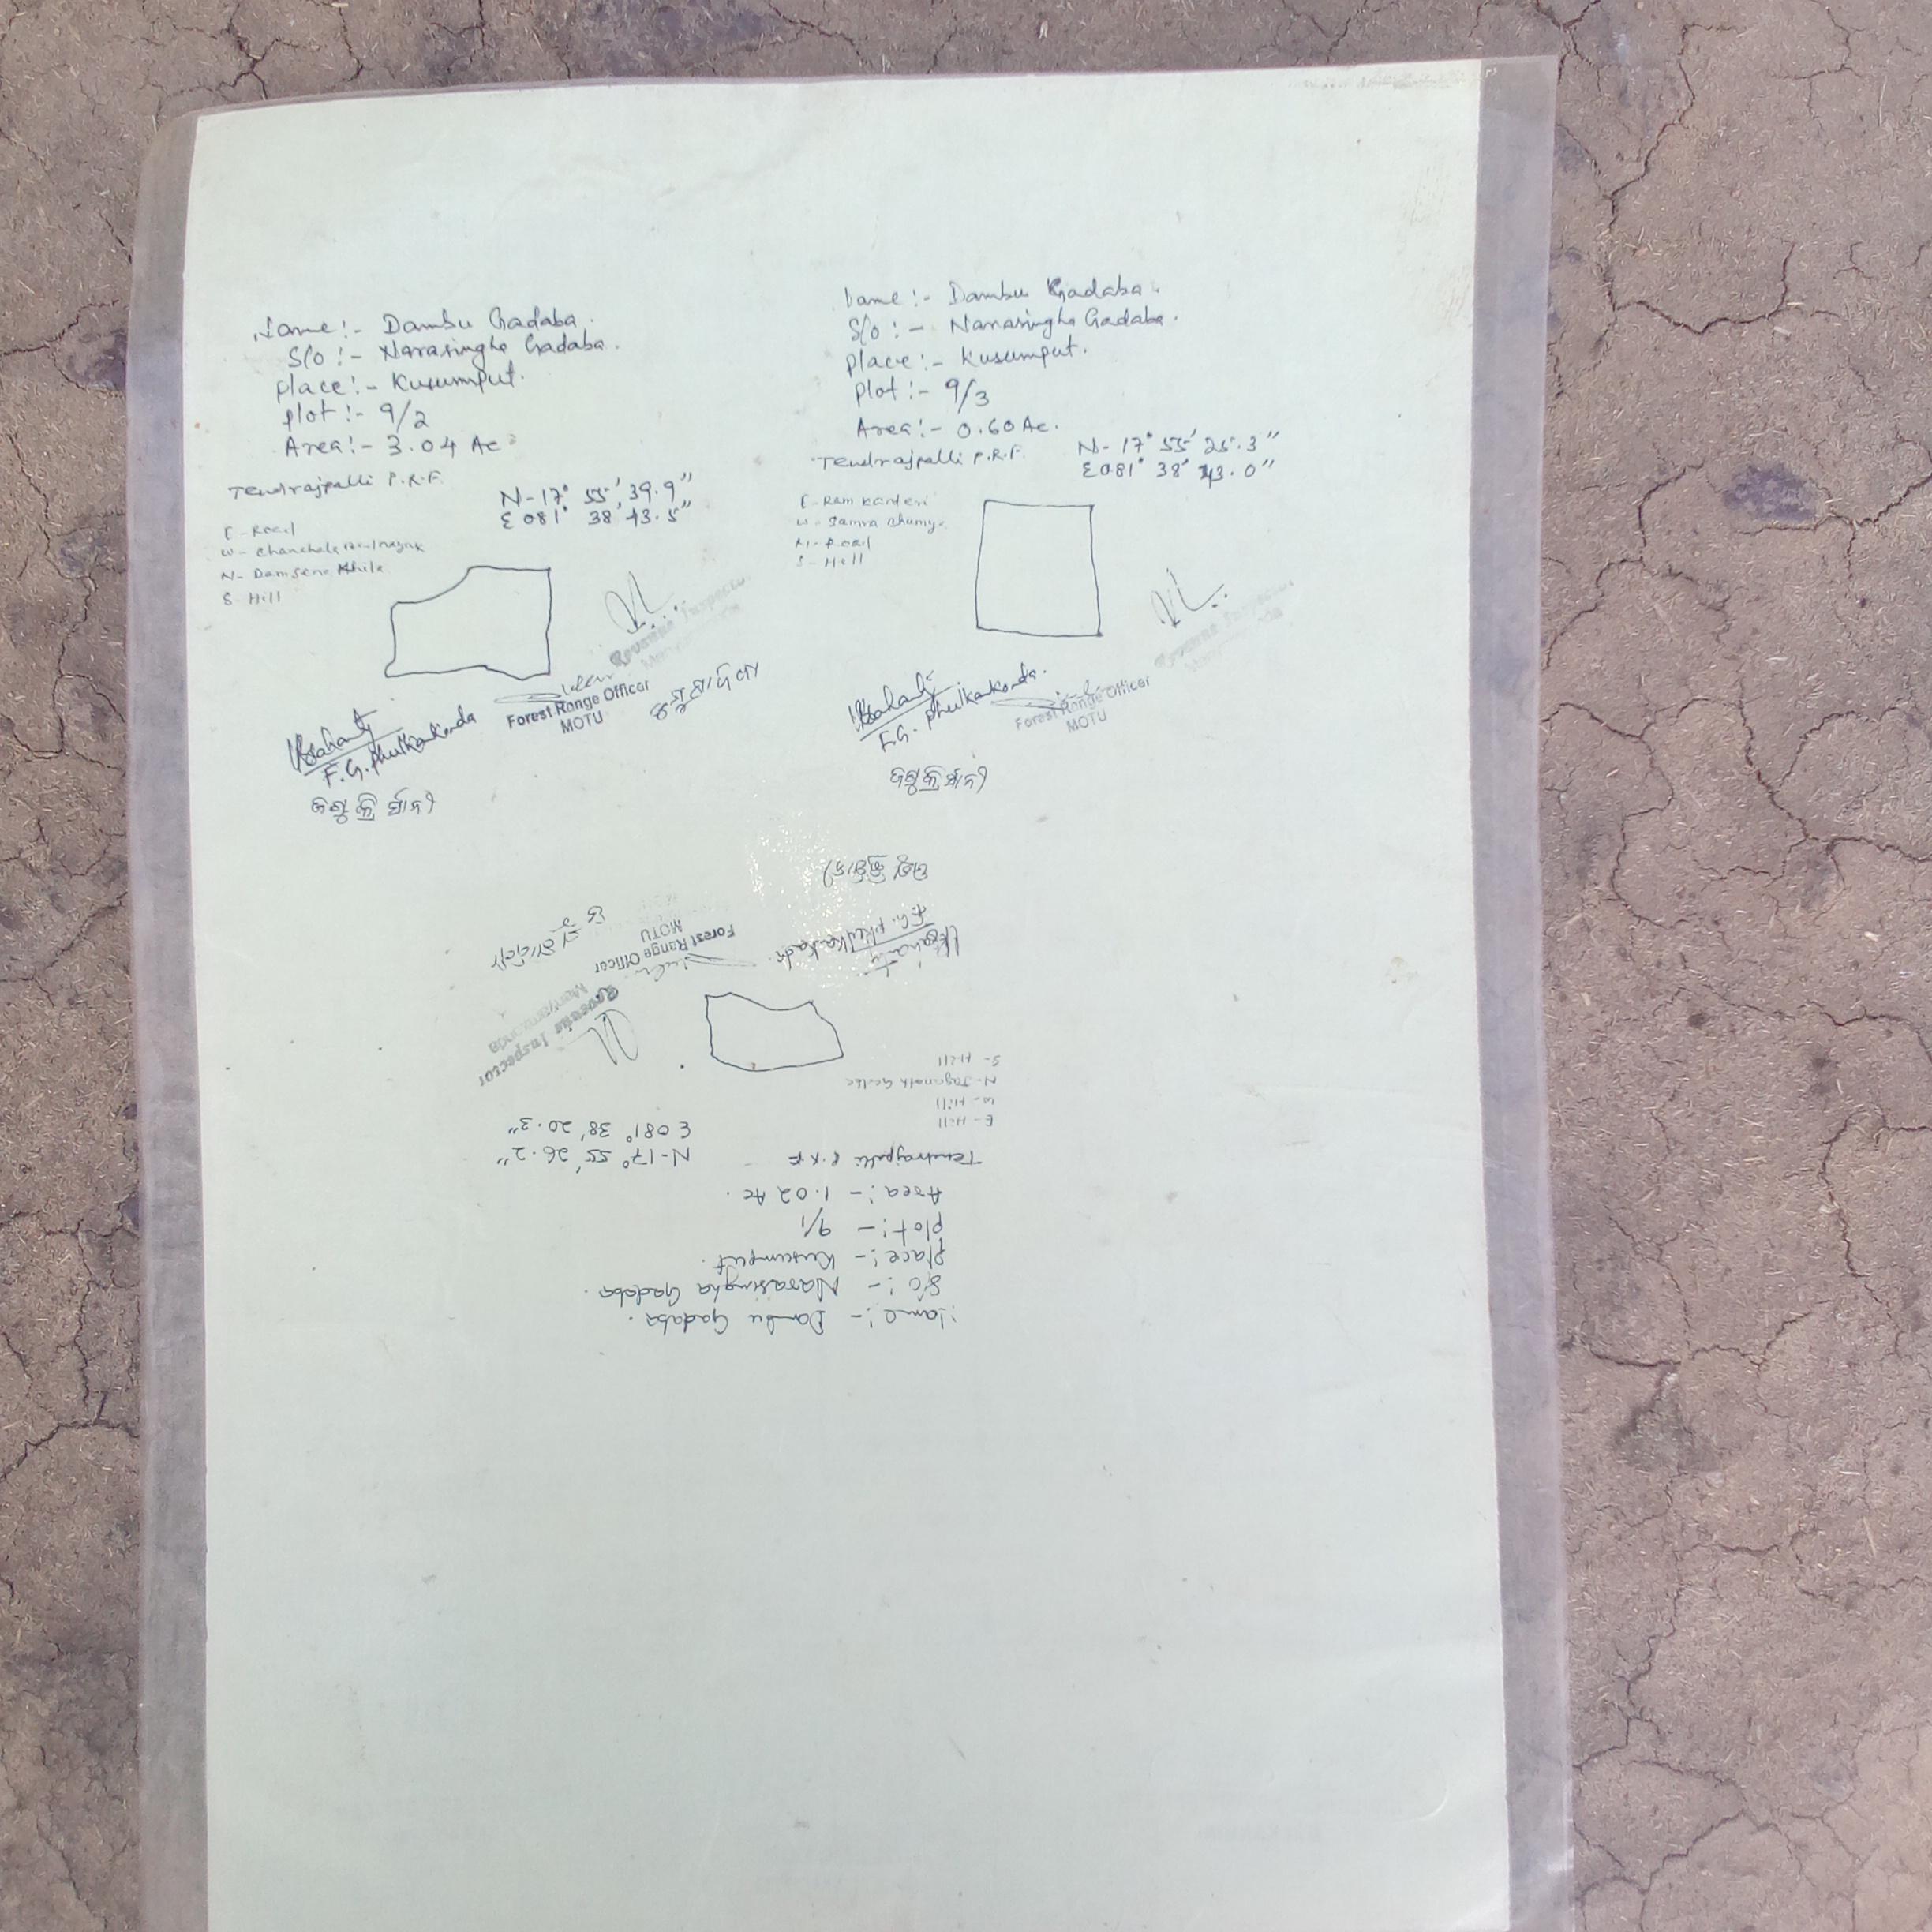 Name :- Dambu Gadaba.
S/o :- Narasingha Gadaba.
Place :- Kusumput.
Plot :- 9/2
Area :- 3.04 Ac
Tendrajpalli P.R.F.
N-17° 55' 39.9"
E 081° 38' 43.5"
E - Road
W - Chanchala
N - Damsena Khila
S - Hill
Revenue Inspector
Forest Range Officer
MOTU
F.G. Phulkankonda
Name :- Dambu Gadaba.
S/o :- Narasingha Gadaba.
Place :- Kusumput.
Plot :- 9/3
Area :- 0.60 Ac.
Tendrajpalli P.R.F.
N- 17° 55' 25.3"
E 081° 38' 43.0"
E - Ram Kanteri
W - Samra
N - Road
S - Hill
Revenue Inspector
Forest Range Officer
MOTU
F.G. Phulkankonda.
Name :- Dambu Gadaba.
S/o :- Narasingha Gadaba.
Place :- Kusumput.
Plot :- 9/1
Area :- 1.02 Ac.
Tendrajpalli
N-17° 55' 26.2"
E 081° 38' 20.3"
E - Hill
W - Hill
N - Jaganath
S - Hill
Revenue Inspector
Forest Range Officer
MOTU
F.G.